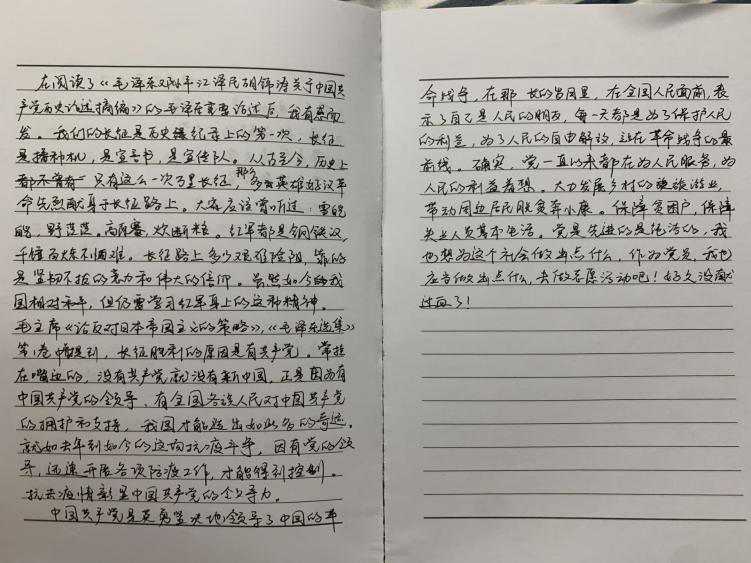 在阅读了《毛泽东邓小平江泽民胡锦涛关于中国共
产党历史论述摘编》的毛泽东重要论述后，我有感而
发。我们的长征是历史记录上的第一次，长征
是播种机，是宣言书，是宣传队。从古至今，历史上
只有这么一次万里长征，那么多英雄好汉革
命先烈献身于长征路上。大家应该常听过：雪皑
皑，野茫茫。高原寒，炊断粮。红军都是钢铁汉，
千锤百炼不怕难。长征路上多少艰难险阻，靠的
是坚韧不拔的毅力和伟大的信仰。虽然如今的我
国相对和平，但仍需学习红军身上的这种精神。
毛主席《论反对日本帝国主义的策略》，《毛泽东选集》
第1卷中提到，长征胜利的原因是有共产党。常挂
在嘴边的，没有共产党就没有新中国，正是因为有
中国共产党的领导、有全国各族人民对中国共产党
的拥护和支持，我国才能造出如此多的奇迹。
就如去年到如今的这场抗疫斗争，因有党的领
导，迅速开展各项防疫工作，才能得到控制。
抗击疫情彰显中国共产党的领导力。
中国共产党是英勇坚决地领导了中国的革
命战争，在那长的岁月里，在全国人民面前，表
示了自己是人民的朋友，每一天都是为了保护人民
的利益，为了人民的自由解放，站在革命战争的最
前线。确实，党一直以来都在为人民服务，为
人民的利益着想。大力发展乡村的旅游业，
带动周边居民脱贫奔小康。保障贫困户，保障
失业人员基本生活。党是先进的是纯洁的，我
也想为这个社会做出点什么，作为党员，我也
应当做出点什么，去做志愿活动吧！好久没献
过血了！